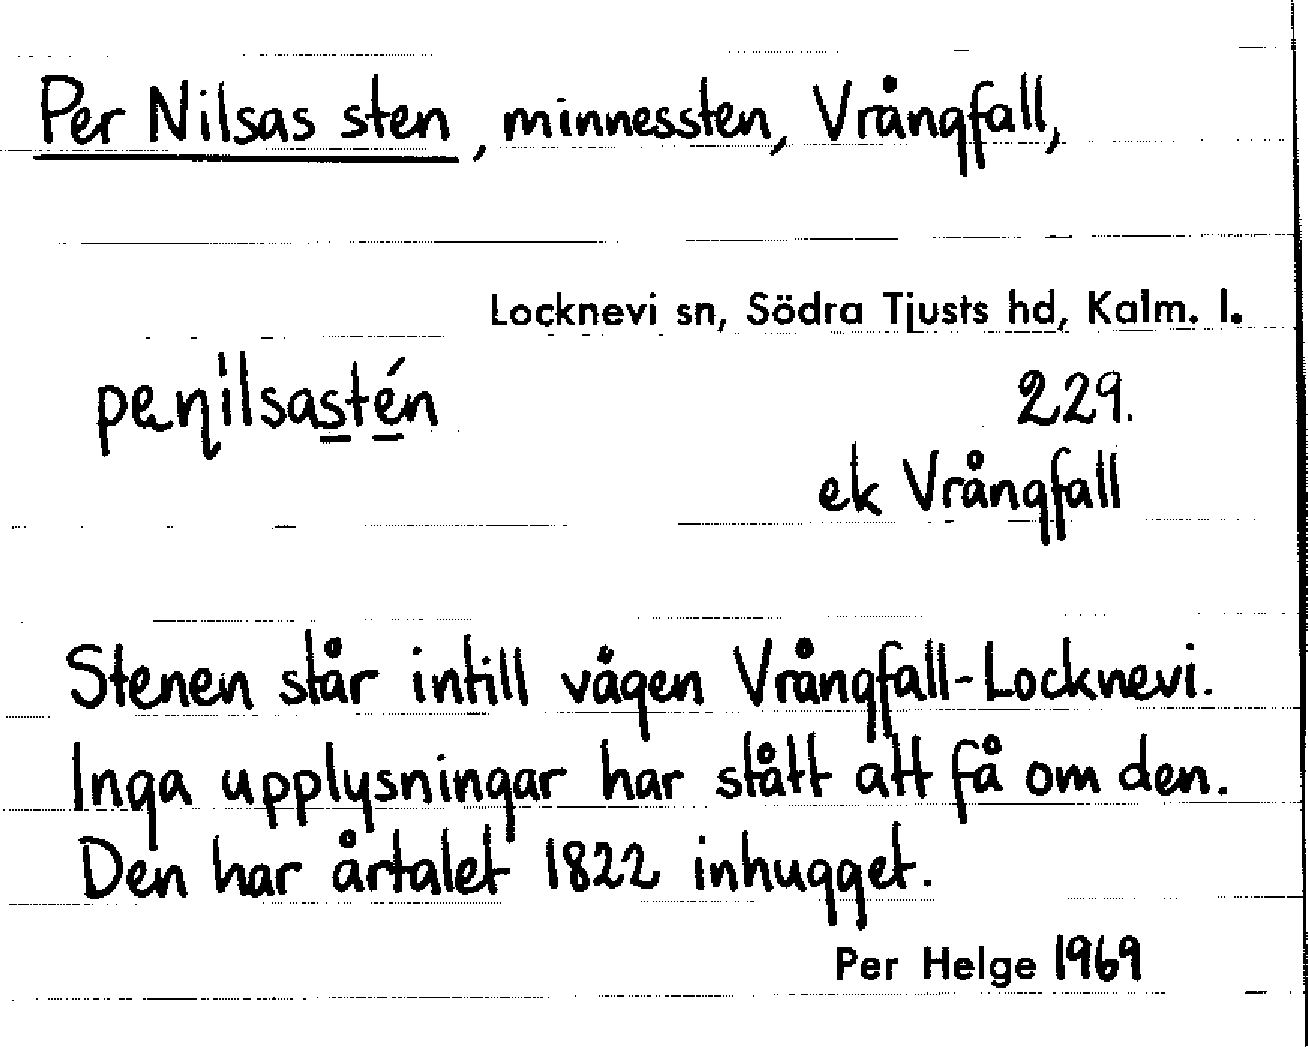 Per Nilsas sten, minnessten, Vrångfall,
Locknevi sn, Södra Tjusts hd, Kalm. l.
peɳilsastén 229.
ek Vrångfall
Stenen står intill vägen Vrångfall-Locknevi.
Inga upplysningar har stått att få om den.
Den har årtalet 1822 inhugget.
Per Helge 1969